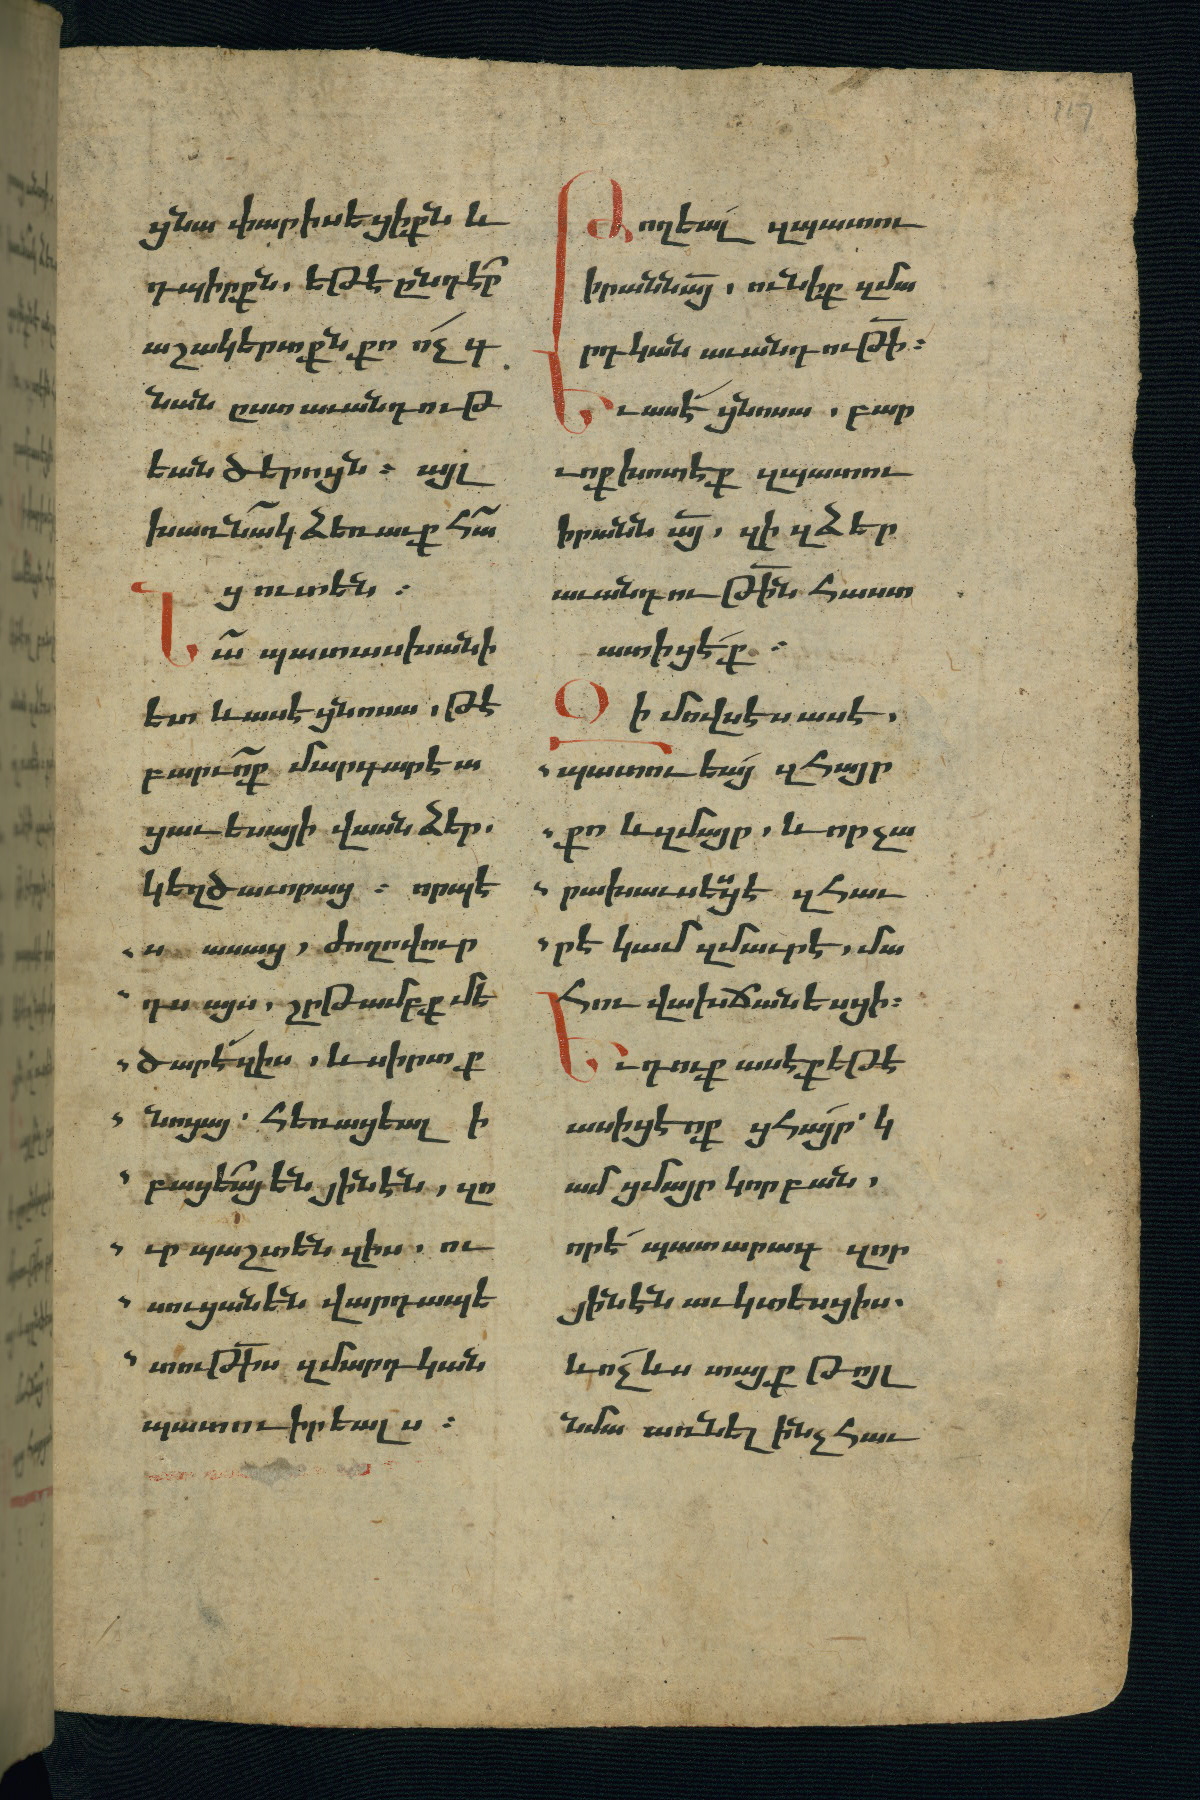 ցնա փարիսեցիքն և
դպիրքն, եթէ ընդէ՞ր
աշակերտքն քո ո՛չ գ
նան ըստ աւանդութ
եան ծերոյն : այլ
խառնակ ձեռաւք հա
ց ուտեն :
Նա պատասխանի
ետ և ասէ ցնոսա, թէ
բարւոք մարգարէա
ցաւ եսայի վասն ձեր.
կեղծաւորաց : որպէ
ս ասաց, ժողովուր
դս այս, շրթամբք մե
ծարէ՛ զիս, և սիրտք
նոցա՝ հեռացեալ ի
բացեայ են յինէն, զո
ւր պաշտեն զիս. ու
սուցանեն վարդապե
տութի̄ս զմարդկան
պատուիրեալս :
Թողեալ զպատու
իրանն ա̄յ, ունիք զմա
րդկան աւանդութի̄ :
Եւ ասէ՛ ցնոսա, բար
ւոք խոտէք զպատու
իրանն ա̄յ, զի զձեր
աւանդութի̄ն հաստ
ատիցէ՛ք :
Զի մովսէս ասէ,
պատուեա՛յ զհայր
քո և զմայր, և որ չա
րախաւսեսցէ զհաւ
րէ կամ զմաւրէ, մա
հու վախճանեսցի :
Եւ դուք ասէք եթէ
ասիցէ ոք ցհա՛յր՝ կ
ամ ցմայր կորբան,
որ է՛ պատարագ զոր
յինէն աւկտեսցիս.
և ո՛չ ևս տայք թոյլ
նմա առնել ինչ հաւ
117